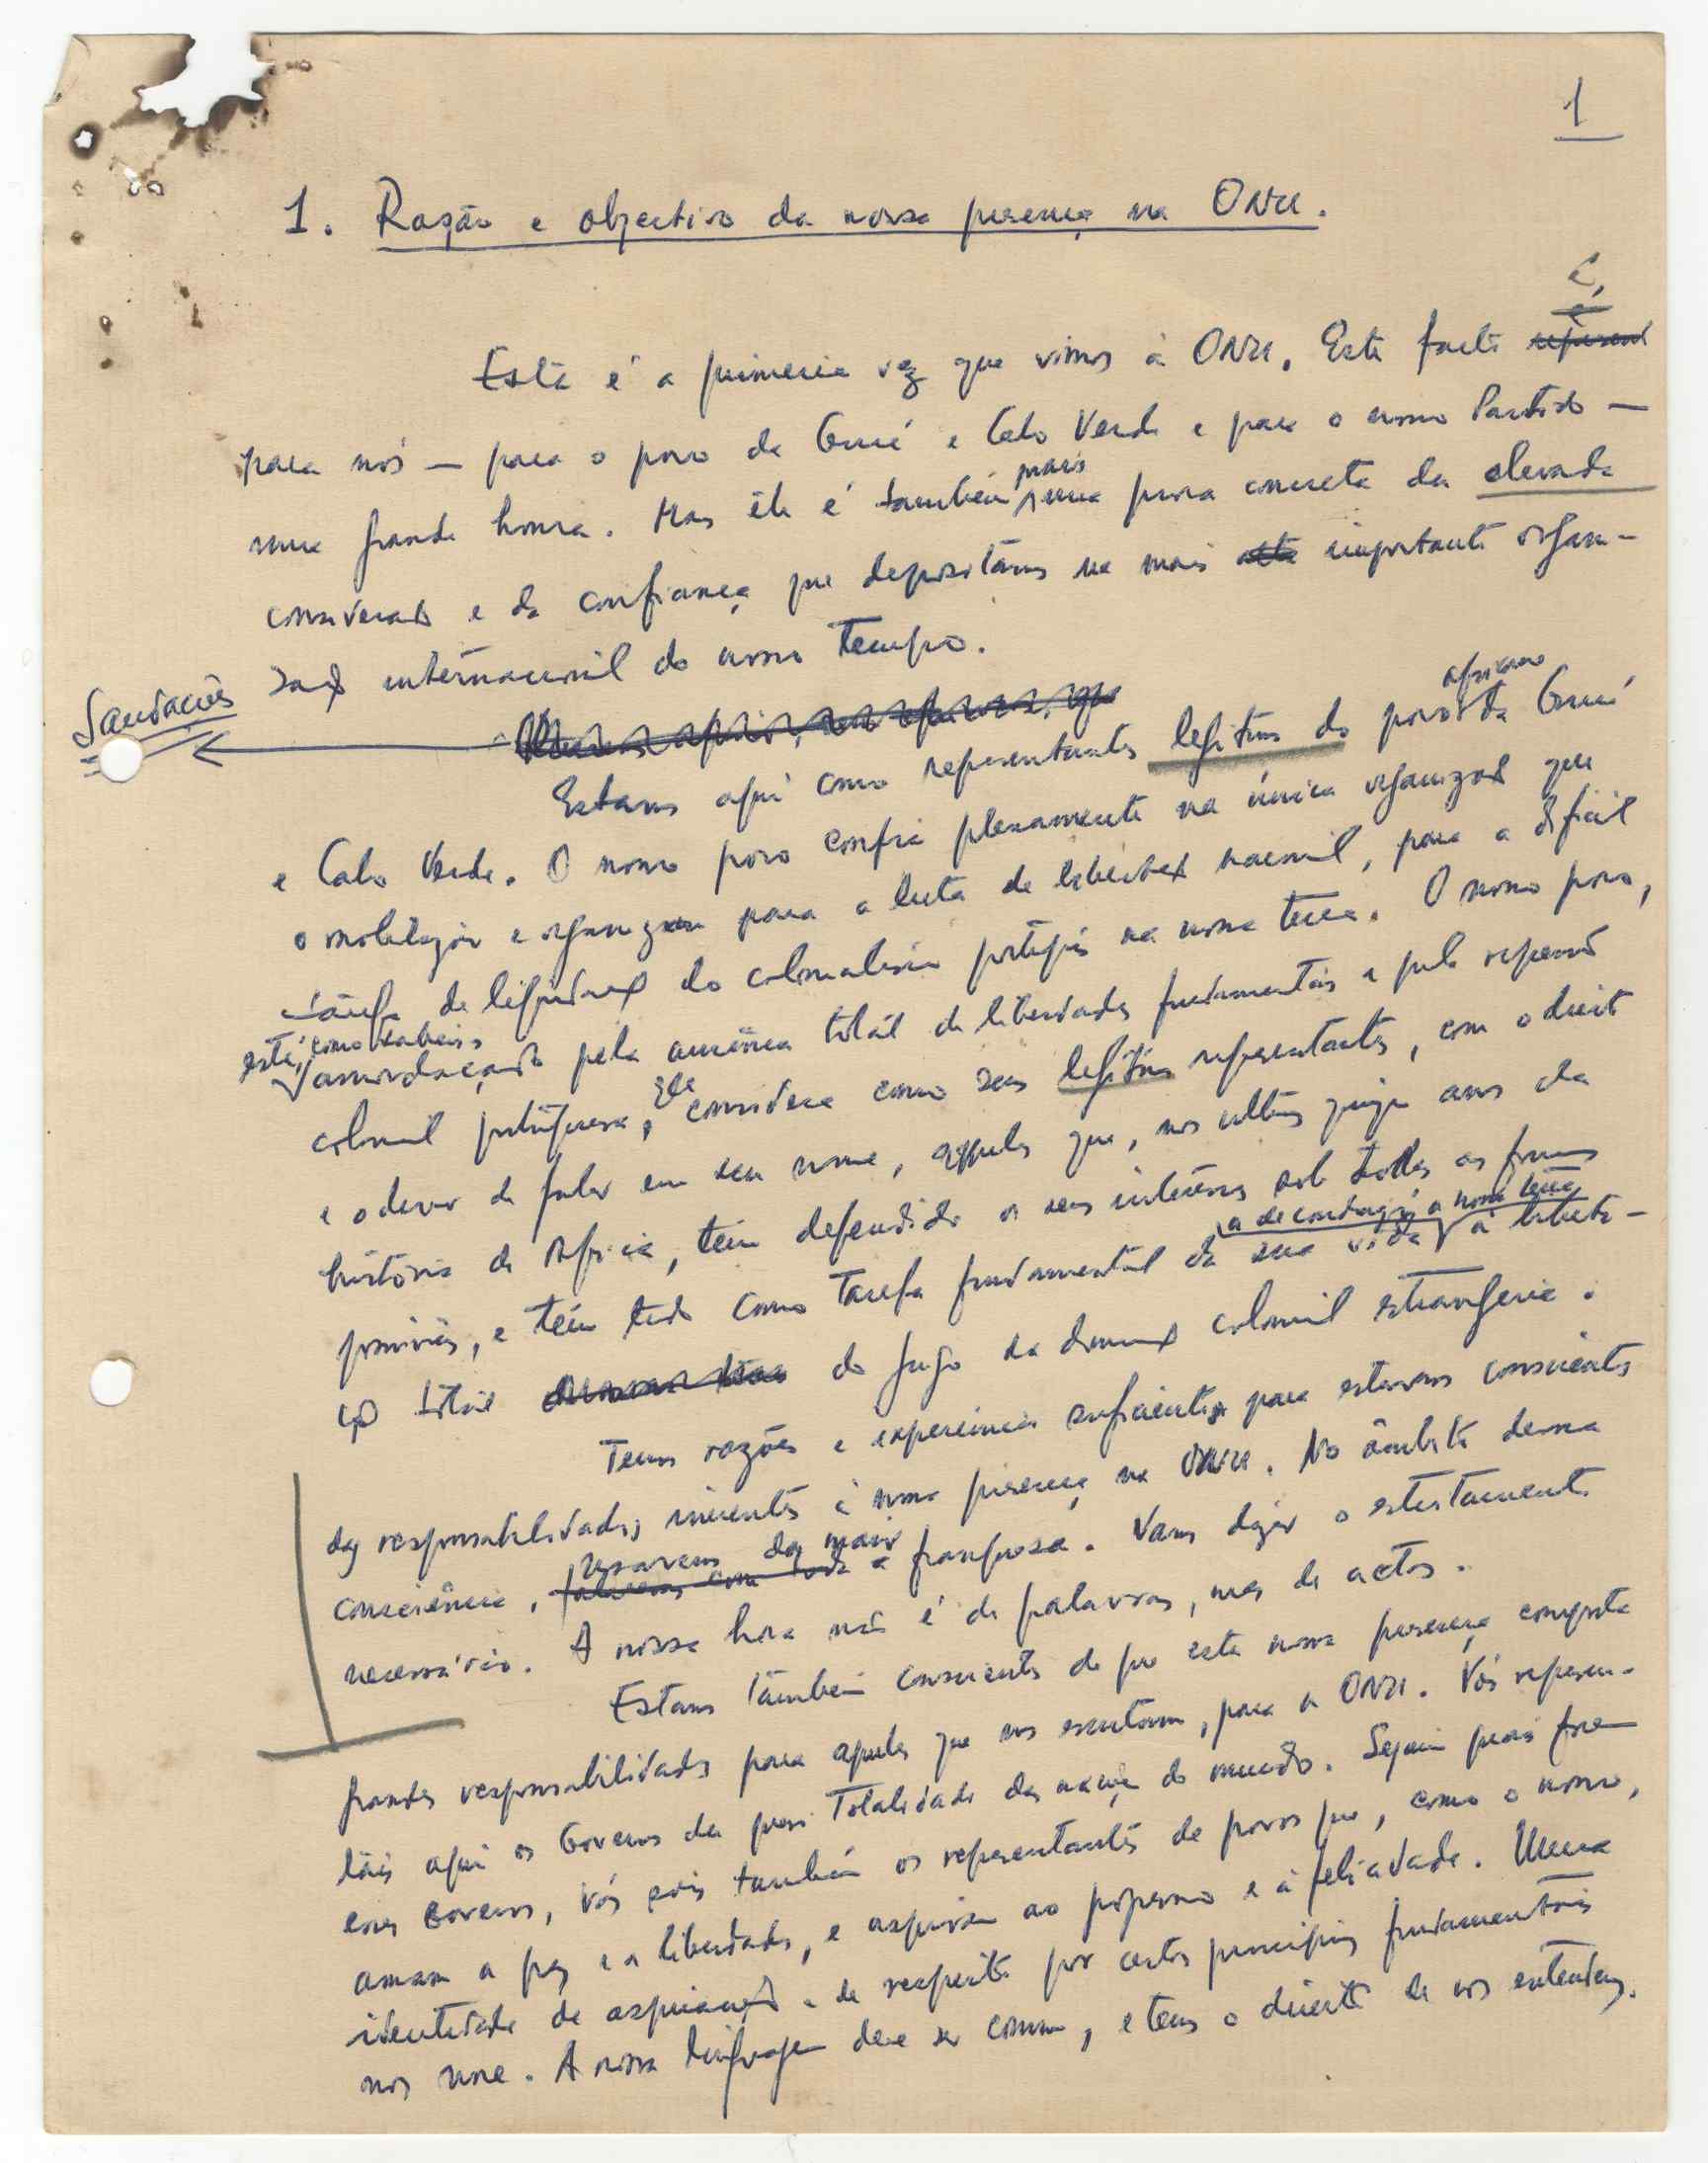 1
1. Razão e objectivo da nossa presença na ONU.
é,
Esta é a primeira vez que vimos à ONU. Este facto
para nós — para o povo da Guiné e Cabo Verde e para o nosso Partido —
mais
uma grande honra. Mas êle é também uma prova concreta da elevada
consideração e da confiança que depositamos na mais importante organi-
zação internacional do nosso tempo.
Saudações
africano
Estamos aqui como representantes legítimos do povo da Guiné
e Cabo Verde. O nosso povo confia plenamente na única organização que
o mobilizou e organizou para a luta de libertação nacional, para a difícil
tarefa de liquidação do colonialismo português na nossa terra. O nosso povo,
está, como sabeis,
amordaçado pela ausência total de liberdades fundamentais e pela repressão
Ele
colonial portuguesa, considera como seus legítimos representantes, com o direito
e o dever de falar em seu nome, aqueles que, nos últimos quinze anos da
história de África, têm defendido os seus interesses sob todas as formas
a de conduzir a nossa terra
possíveis, e têm tido como tarefa fundamental da sua vida à liberta-
ção total do jugo da dominação colonial estrangeira.
Temos razões e experiência suficientes para estarmos conscientes
das responsabilidades inerentes à nossa presença na ONU. No âmbito dessa
usaremos da maior
consciência, franqueza. Vamos dizer o estritamente
necessário. A nossa hora não é de palavras, mas de actos.
Estamos também conscientes de que esta nossa presença comporta
grandes responsabilidades para aqueles que nos escutam, para a ONU. Vós represen-
tais aqui os Governos da quasi totalidade das nações do mundo. Sejam quais forem
esses Governos, vós sois também os representantes de povos que, como o nosso,
amam a paz e a liberdade, e aspiram ao progresso e à felicidade. Uma
identidade de aspirações e de respeito por certos princípios fundamentais
nos une. A nossa linguagem deve ser comum, e temos o direito de nos entendermos.